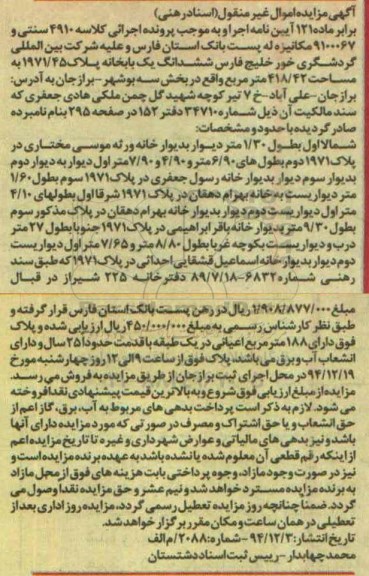 آگهی مزایده اموال غیر منقول (اسناد رهنی)
برابر ماده ۱۲۱ آیین نامه اجرا و به موجب پرونده اجرائی کلاسه ۴۹۱۰ سنتی و
۹۱۰۰۰۶۷ مکانیزه له پست بانک استان فارس و علیه شرکت بین المللی
گردشگری خور خلیج فارس ششدانگ یک بابخانه پلاک ۱۹۷۱/۴۵ به
مساحت ۴۱۸/۴۲ متر مربع واقع در بخش سه بوشهر - برازجان به آدرس:
برازجان - علی آباد - خ ۷ تیر کوچه شهید گل چمن ملکی هادی جعفری که
سند مالکیت آن ذیل شماره ۳۴۷۱۰ دفتر ۱۵۲ در صفحه ۲۹۵ بنام نامبرده
صادر گردیده با حدود و مشخصات:
شمالا اول بطول ۱/۳۰ متر دیوار بدیوار خانه ورثه موسی مختاری در
پلاک ۱۹۷۱ دوم بطول های ۶/۹۰ متر و ۴/۹۰ و ۷/۹۰ متر اول دیوار به دیوار دوم
بدیوار سوم دیوار بدیوار خانه رسول جعفری در پلاک ۱۹۷۱ سوم بطول ۱/۶۰
متر دیواریست به خانه بهرام دهقان در پلاک ۱۹۷۱ شرقا اول بطولهای ۴/۱۰
متر اول دیواریست دوم دیوار بدیوار خانه بهرام دهقان در پلاک مذکور سوم
بطول ۹/۳۰ متر بدیوار خانه باقر ابراهیمی در پلاک ۱۹۷۱ جنوبا بطول ۲۷ متر
درب و دیواریست بکوچه غربا بطول ۸/۸۰ متر و ۷/۶۵ متر اول دیواریست
دوم دیوار بدیوار خانه اسماعیل قشقایی احداثی در پلاک ۱۹۷۱ که طبق سند
رهنی شماره ۶۸۳۲-۸۹/۷/۱۸ دفترخانه ۲۲۵ شیراز در قبال
مبلغ ۱/۹۰۸/۸۷۷/۰۰۰ ریال در رهن پست بانک استان فارس قرار گرفته و
طبق نظر کارشناس رسمی به مبلغ ۴۵۰/۰۰۰/۰۰۰ ریال ارزیابی شده و پلاک
فوق دارای ۱۸۸ متر مربع اعیانی در یک طبقه با قدمت حدودا ۲۵ سال و دارای
انشعاب آب و برق می باشد، پلاک فوق از ساعت ۹ الی ۱۲ روز چهارشنبه مورخ
۹۴/۱۲/۱۹ در محل اجرای ثبت برازجان از طریق مزایده به فروش می رسد.
مزایده از مبلغ ارزیابی فوق شروع و به بالاترین قیمت پیشنهادی نقدا فروخته
می شود. لازم به ذکر است پرداخت بدهی های مربوط به آب، برق، گاز اعم از
حق انشعاب و یا حق اشتراک و مصرف در صورتی که مورد مزایده دارای آنها
باشد و نیز بدهی های مالیاتی و عوارض شهرداری و غیره تا تاریخ مزایده اعم
از اینکه رقم قطعی آن معلوم شده یا نشده باشد به عهده برنده مزایده است و
نیز در صورت وجود مازاد، وجوه پرداختی بابت هزینه های فوق از محل مازاد
به برنده مزایده مسترد خواهد شد و نیم عشر و حق مزایده نقدا وصول می
گردد. ضمنا چنانچه روز مزایده تعطیل رسمی گردد، مزایده روز اداری بعد از
تعطیلی در همان ساعت و مکان مقرر برگزار خواهد شد.
تاریخ انتشار: ۹۴/۱۲/۳ - شماره: ۲۰۸۸/م الف
محمد چهابدار - رییس ثبت اسناد دشتستان